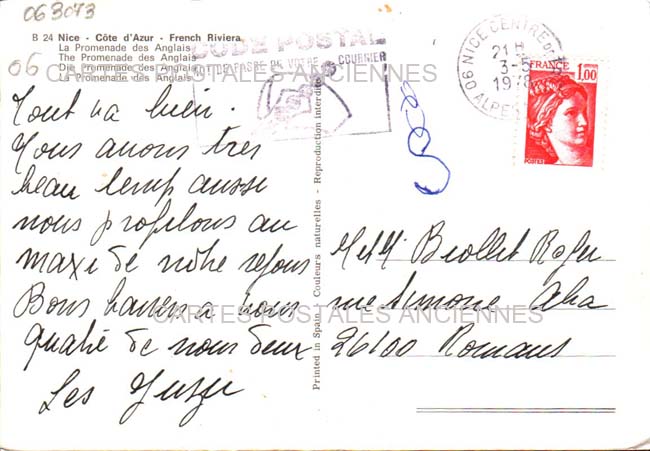 063073
B 24 Nice - Côte d'Azur - French Riviera
La Promenade des Anglais
The Promenade des Anglais
Die Promenade des Anglais
La Promenade des Anglais
06
CODE POSTAL
MOT DE PASSE DE VOTRE COURRIER
06 NICE CENTRE
21 H
3-5
1978
ALPES
FRANCE
1,00
POSTES
CARTES POSTALES ANCIENNES
Tout va bien.
Nous avons très
beau temps aussi
nous profitons au
maxi de notre séjour
Bons baisers à vous
quatre de nous deux
Les
Printed in Spain - Couleurs naturelles - Reproduction interdite
M et M Roger
rue Simone
26100 Romans
CARTES POSTALES ANCIENNES